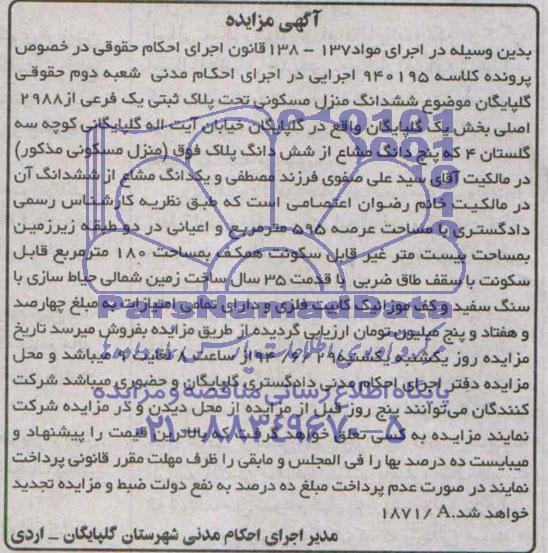 آگهی مزایده
بدین وسیله در اجرای مواد۱۳۷ – ۱۳۸قانون اجرای احکام حقوقی در خصوص
پرونده کلاسه ۹۴۰۱۹۵ اجرایی در اجرای احکام مدنی شعبه دوم حقوقی
گلپایگان موضوع ششدانگ منزل مسکونی تحت پلاک ثبتی یک فرعی از۲۹۸۸
اصلی بخش یک گلپایگان واقع در گلپایگان خیابان آیت اله گلپایگانی کوچه سه
گلستان ۴ که پنج دانگ مشاع از شش دانگ پلاک فوق (منزل مسکونی مذکور)
در مالکیت آقای سید علی صفوی فرزند مصطفی و یکدانگ مشاع از ششدانگ آن
در مالکیت خانم رضوان اعتصامی است که طبق نظریه کارشناس رسمی
دادگستری با مساحت عرصه ۵۹۵ مترمربع و اعیانی در دو طبقه زیرزمین
بمساحت بیست متر غیر قابل سکونت همکف بمساحت ۱۸۰ مترمربع قابل
سکونت با سقف طاق ضربی با قدمت ۳۵ سال ساخت زمین شمالی حیاط سازی با
سنگ سفید و کف موزائیک کابینت فلزی و دارای تمامی امتیازات به مبلغ چهارصد
و هفتاد و پنج میلیون تومان ارزیابی گردیده از طریق مزایده بفروش میرسد تاریخ
مزایده روز یکشنبه یکشنبه ۹۴/۶/۲۹ از ساعت ۸ لغایت ۹ میباشد و محل
مزایده دفتر اجرای احکام مدنی دادگستری گلپایگان و حضوری میباشد شرکت
کنندگان می‌توانند پنج روز قبل از مزایده از محل دیدن و در مزایده شرکت
نمایند مزایده به کسی تعلق خواهد گرفت که بالاترین قیمت را پیشنهاد و
میبایست ده درصد بها را فی المجلس و مابقی را ظرف مهلت مقرر قانونی پرداخت
نمایند در صورت عدم پرداخت مبلغ ده درصد به نفع دولت ضبط و مزایده تجدید
خواهد شد.۱۸۷۱/A
مدیر اجرای احکام مدنی شهرستان گلپایگان _ اردی
ParsNamadData
پایگاه اطلاع رسانی مناقصه و مزایده
۰۲۱-۸۸۳۴۹۶۷۰-۵